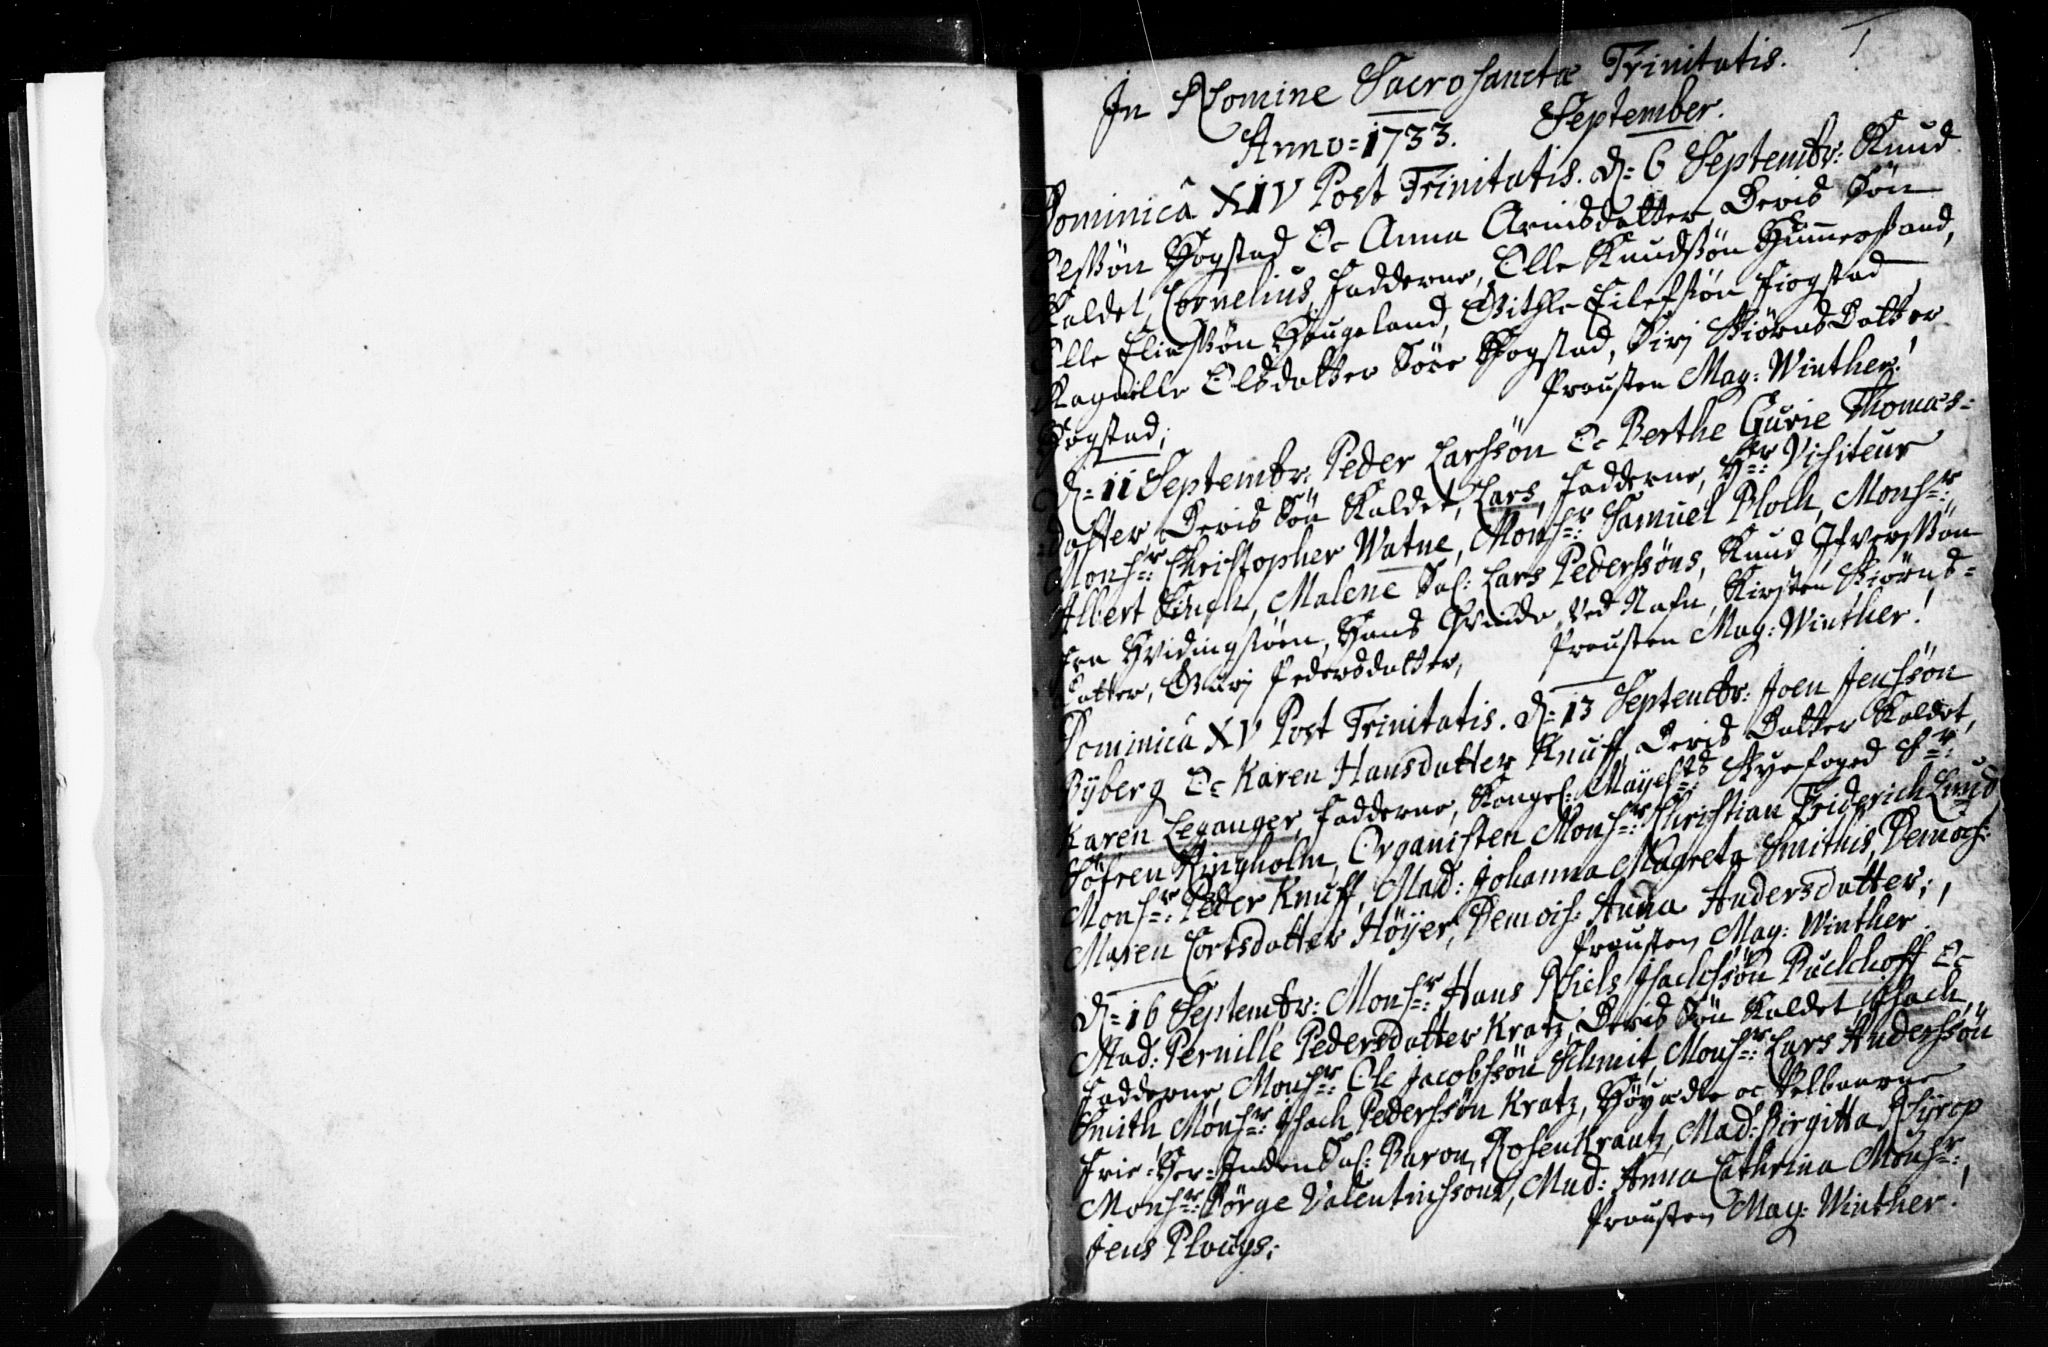 1
In Nomine Sacrosanctæ Trinitatis.
Anno=1733. September.
Dominicâ XIV Post Trinitatis. d=6 Septembr: Knud
Hogstad Oc Anna Arnisdatter, Deris Søn
Kaldet, Cornelius, Fadderne, Olle Knudssøn
Olle Eliassøn Haugeland, Githle Eilefsøn Hogstad
Ragnille Olsdatter Söre Hogstad, Siri Biörns Datter
Hogstad; Prousten Mag: Winther!
d=11 Septembr: Peder Larssøn Oc Berthe Gurie Thomas=
=datter, Deris Søn Kaldet, Lars, Fadderne, Hr: Visiteur
Monsr: Christopher Watne, Monsr: Samuel Bloch, Monsr:
Albert Singh, Malene Sal: Lars Pederssøns, Knud Ifverssøn
fra Hvidingsøen, Hans Ved Nafn, Kirsten Biörns=
Datter, Guri Pedersdatter, Prousten Mag: Winther!
Dominicâ XV Post Trinitatis. d=13 Septembr: Joen Jenssøn
Byberg Oc Karen Hansdatter Knuff, Deris Datter Kaldet,
Karen Leganger, Fadderne, Kongel: Mayestts Byefoged Sr:
Söfren Ringholm, Organisten Monsr: Christian Friderich Lund,
Monsr: Peder Knuff, Mad: Johanna Magreta Smithis, Demois:
Maren Cortsdatter Höyer, Demois: Anna Andersdatter;
Prousten Mag: Winther.
d=16 Septembr: Monsr: Hans Niels Isachssøn Buckhoff Oc
Mad: Pernille Pedersdatter Kratz, Deris Søn Kaldet, Isach,
Fadderne, Monsr: Ole Jacobssøn Schmit, Monsr: Lars Anderssøn
Smith, Monsr: Isach Pederssøn Kratz, Höyædle oc Velbaarne
Frie=Her=Inden Sal: Baron RosenKrantz, Mad: Birgitta Nyrop
Monsr: Börge Valentinssøns, Mad: Anna Cathrina Monsr:
Jens Plougs; Prousten Mag: Winther!